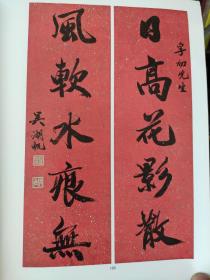 孚初先生
日高花影散
風軟水痕無
吴湖帆